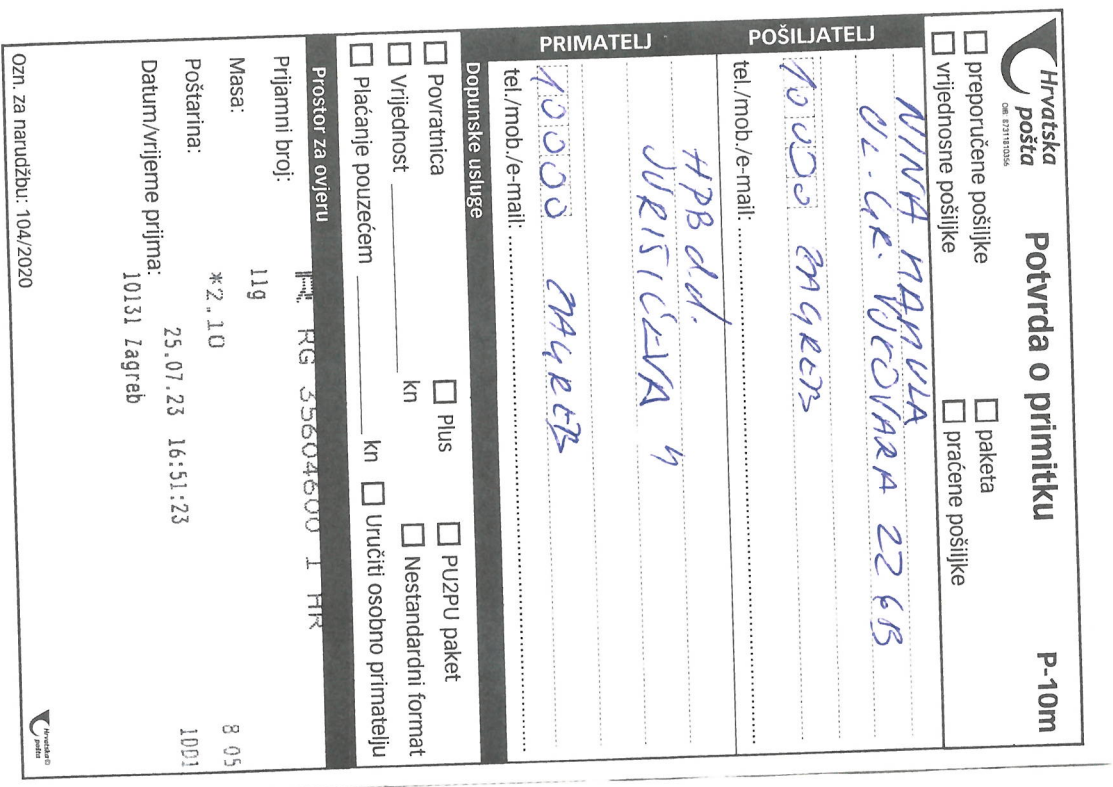 Hrvatska
pošta
OIB: 87311810356
Potvrda o primitku
P-10m
preporučene pošiljke
paketa
vrijednosne pošiljke
praćene pošiljke
POŠILJATELJ
NINA MAMULA
UL. GR. VUKOVARA 226B
10000 ZAGREB
tel./mob./e-mail:
PRIMATELJ
HPB d.d.
JURIŠIĆEVA 4
10000 ZAGREB
tel./mob./e-mail:
Dopunske usluge
Povratnica
Plus
PU2PU paket
Vrijednost kn
Nestandardni format
Plaćanje pouzećem kn
Uručiti osobno primatelju
Prostor za ovjeru
Prijamni broj: R RG 35604600 1 HR
Masa: 11g
Poštarina: *2.10
8 05
Datum/vrijeme prijma: 25.07.23 16:51:23
1001
10131 Zagreb
Ozn. za narudžbu: 104/2020
Hrvatska
pošta